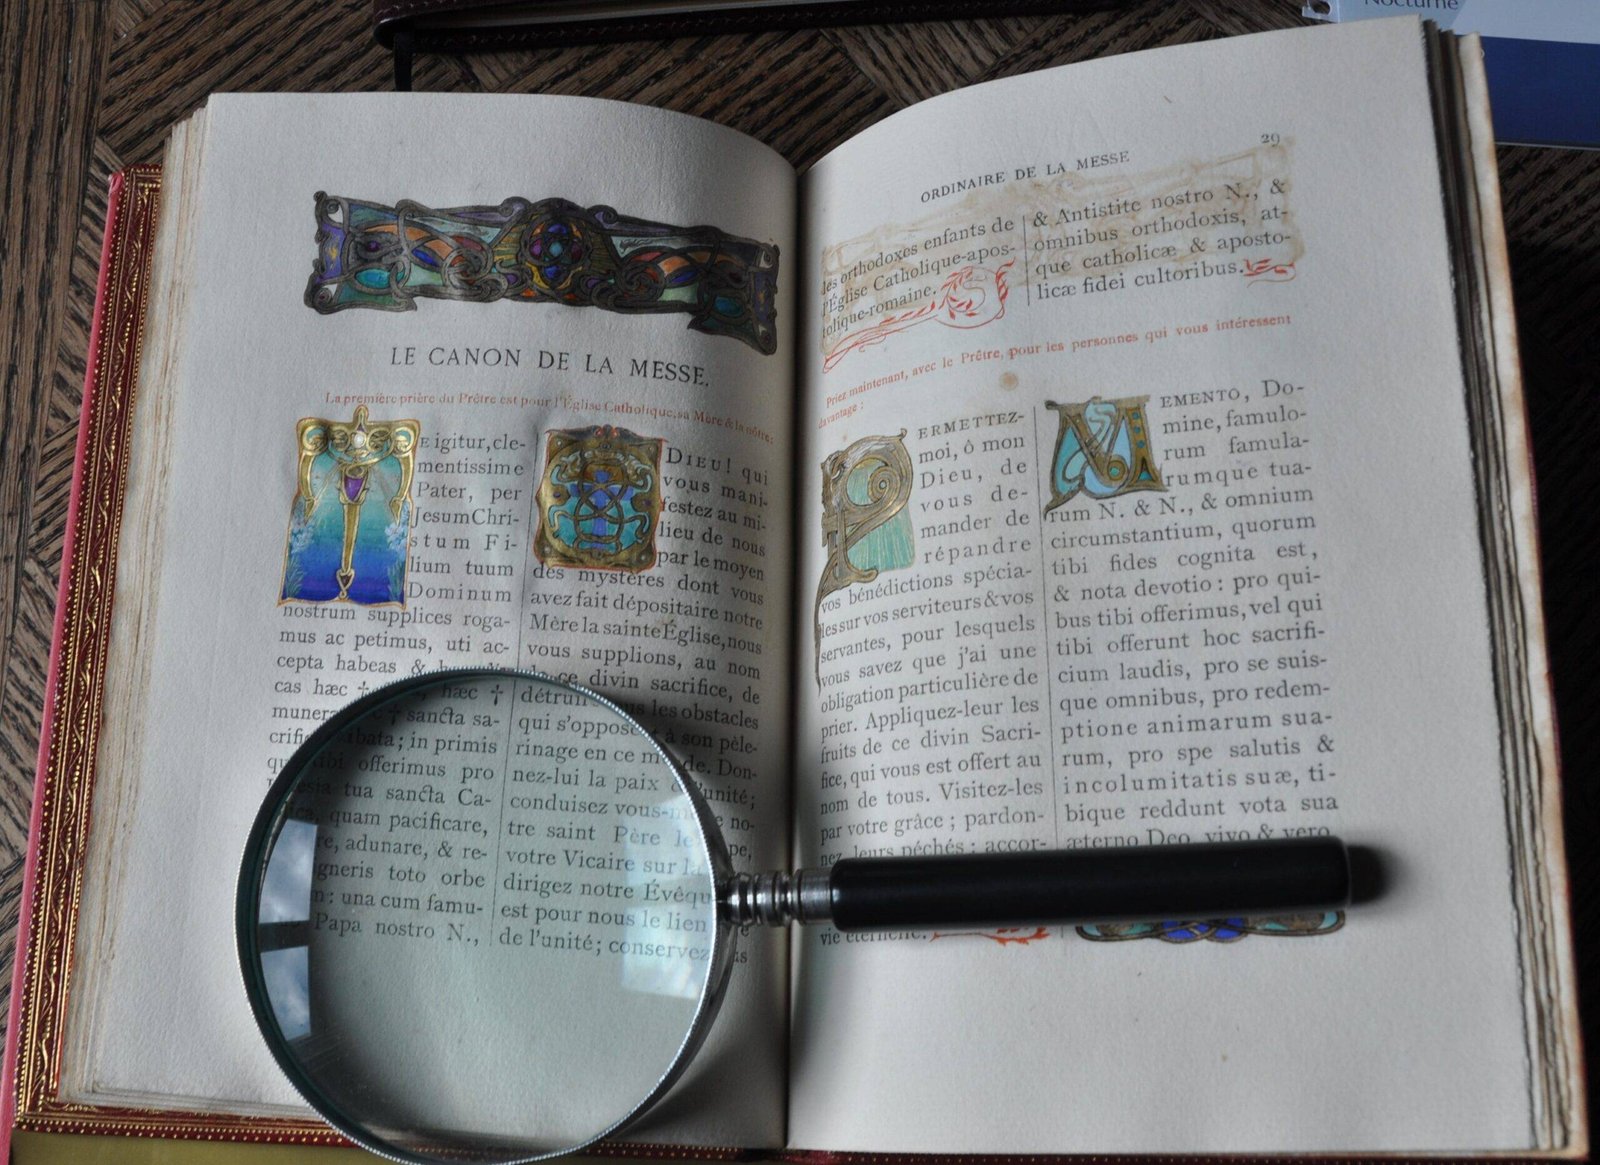 Nocturne
LE CANON DE LA MESSE.
La première prière du Prêtre est pour l'Église Catholique, sa Mère & la nôtre:
TE igitur, cle-
mentissime
Pater, per
Jesum Chri-
stum Fi-
lium tuum
Dominum
nostrum supplices roga-
mus ac petimus, uti ac-
cepta habeas &
cas hæc † hæc †
munera † sancta sa-
crificia illibata; in primis
quæ tibi offerimus pro
Ecclesia tua sancta Ca-
quam pacificare,
adunare, & re-
toto orbe
una cum famu-
Papa nostro N.,
O DIEU! qui
vous mani-
festez au mi-
lieu de nous
par le moyen
des mystères dont vous
avez fait dépositaire notre
Mère la sainte Église, nous
vous supplions, au nom
de ce divin sacrifice, de
détruire tous les obstacles
qui s'opposent à son pèle-
rinage en ce monde. Don-
nez-lui la paix & l'unité;
conduisez vous-même no-
tre saint Père le Pape,
votre Vicaire sur la
dirigez notre Évêque
est pour nous le lien
de l'unité; conservez
29
ORDINAIRE DE LA MESSE
les orthodoxes enfants de
l'Église Catholique-apos-
tolique-romaine.
& Antistite nostro N., &
omnibus orthodoxis, at-
que catholicæ & aposto-
licæ fidei cultoribus.
Priez maintenant, avec le Prêtre, pour les personnes qui vous intéressent
davantage:
PERMETTEZ-
moi, ô mon
Dieu, de
vous de-
mander de
répandre
vos bénédictions spécia-
les sur vos serviteurs & vos
servantes, pour lesquels
vous savez que j'ai une
obligation particulière de
prier. Appliquez-leur les
fruits de ce divin Sacri-
fice, qui vous est offert au
nom de tous. Visitez-les
par votre grâce; pardon-
nez leurs péchés; accor-
vie éternelle.
MEMENTO, Do-
mine, famulo-
rum famula-
rumque tua-
rum N. & N., & omnium
circumstantium, quorum
tibi fides cognita est,
& nota devotio: pro qui-
bus tibi offerimus, vel qui
tibi offerunt hoc sacrifi-
cium laudis, pro se suis-
que omnibus, pro redem-
ptione animarum sua-
rum, pro spe salutis &
incolumitatis suæ, ti-
bique reddunt vota sua
æterno Deo, vivo & vero